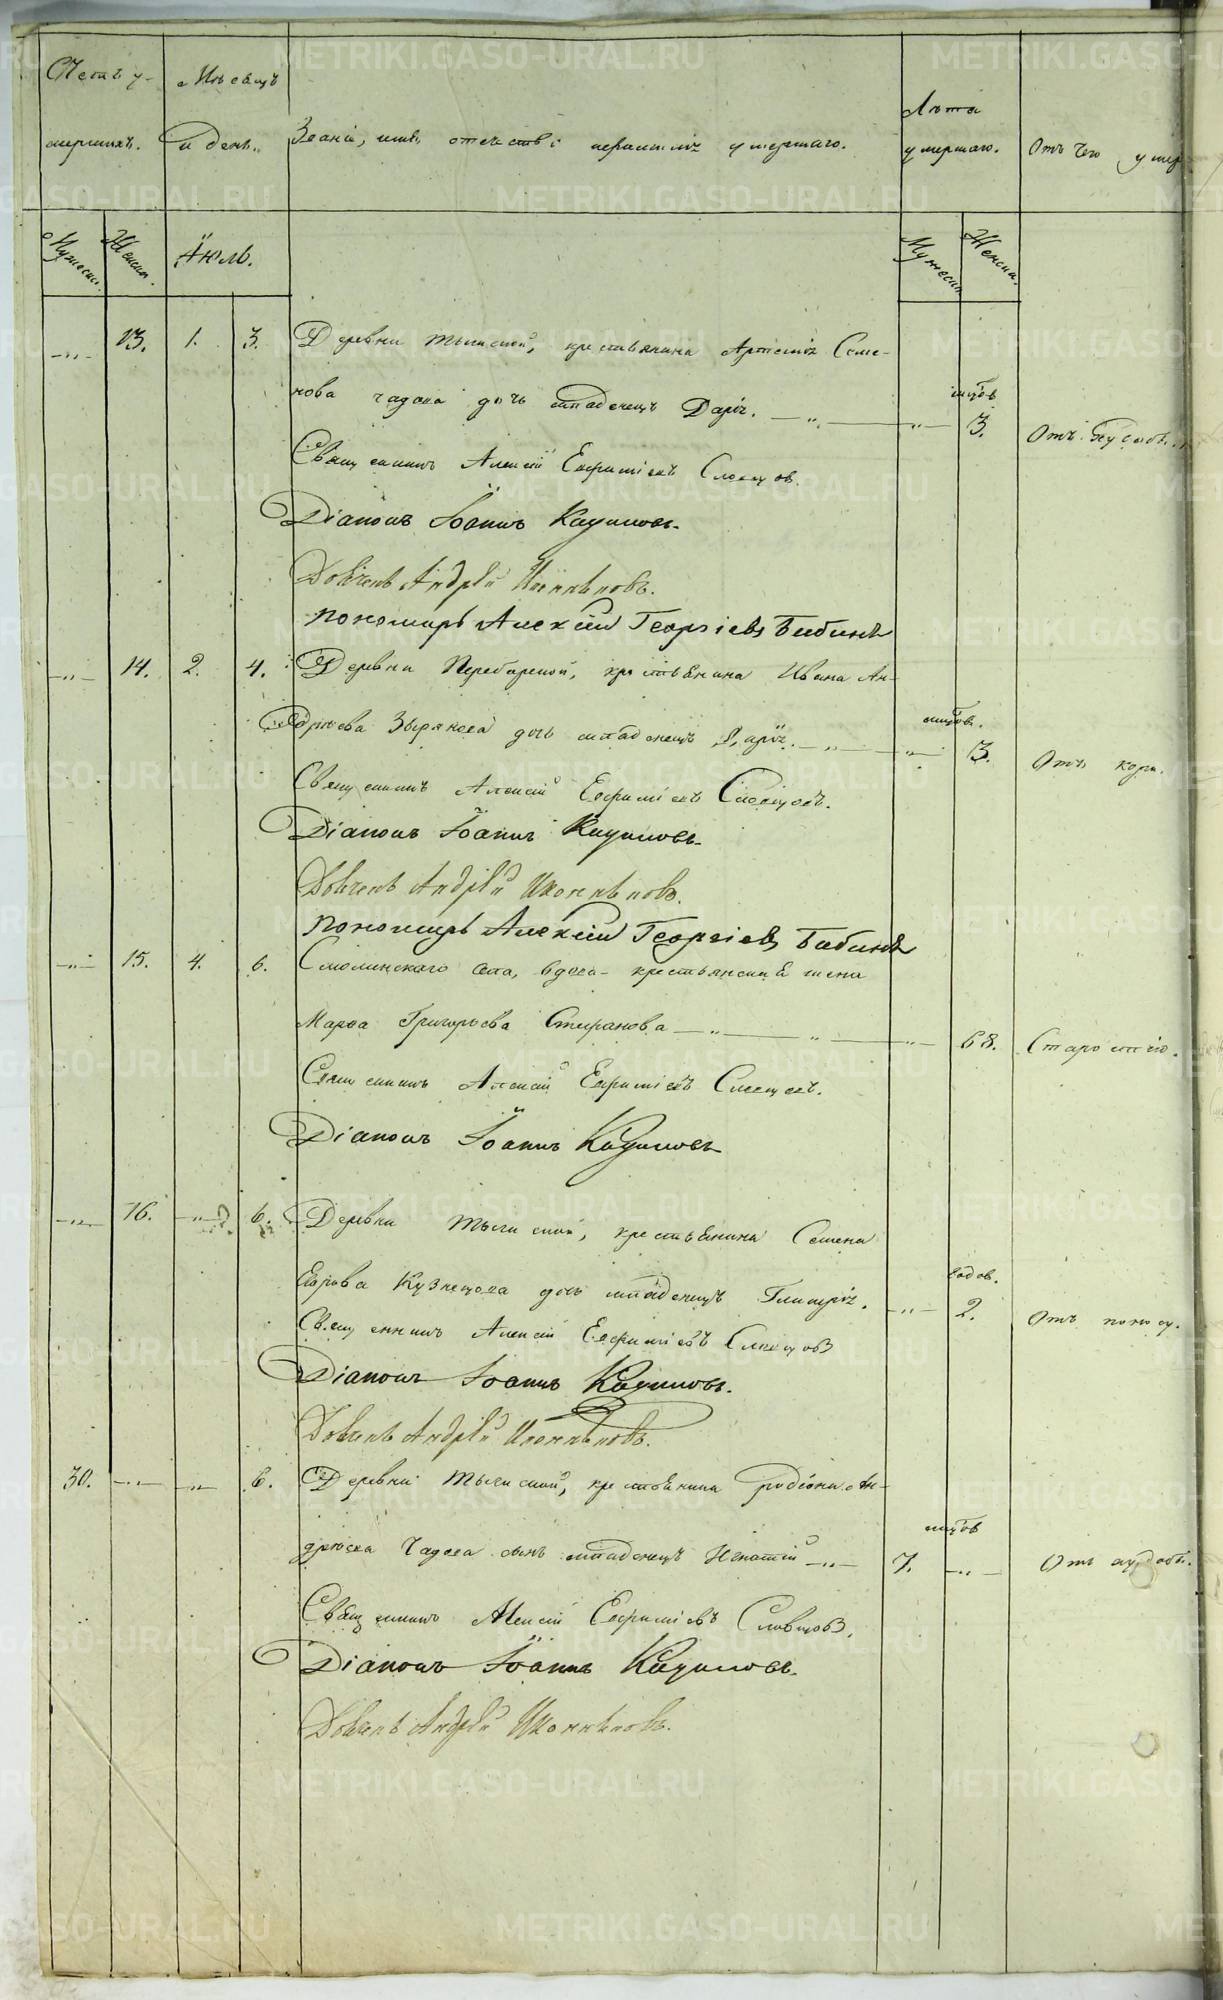 Счетъ у-
мершихъ.
Мѣсяцъ
и день.
Званіе, имя, отечество и фамилія умершаго.
Лѣта
умершаго.
Отъ чего умер
Мужеска.
Женска.
Іюль.
Мужеска.
Женска.
13. 1. 3. Деревни крестьянина Артемія Семе-
нова Чадова дочь младенецъ Дарія. 3. Отъ
Священникъ Алексій Евфиміевъ Словцовъ.
Діаконъ Іоаннъ Кадиловъ.
Дьячекъ Андрей Иконниковъ.
Пономарь Алексій Георгіевъ Бабинъ
14. 2. 4. Деревни крестьянина Ивана Ан-
дрѣева Зырянова дочь младенецъ Дарія. 3. Отъ кори.
Священникъ Алексій Евфиміевъ Словцовъ.
Діаконъ Іоаннъ Кадиловъ.
Дьячекъ Андрей Иконниковъ.
Пономарь Алексій Георгіевъ Бабинъ
15. 4. 6. Смолинскаго села, вдова крестьянская жена
Марѳа Григорьева 68. Старостію.
Священникъ Алексій Евфиміевъ Словцовъ.
Діаконъ Іоаннъ Кадиловъ
16. 6. Деревни крестьянина Семена
годов.
Кузнецова дочь младенецъ Гликерія. 2. Отъ поносу.
Священникъ Алексій Евфиміевъ Словцовъ
Діаконъ Іоаннъ Кадиловъ.
Дьячекъ Андрей Иконниковъ.
30. 6. Деревни крестьянина Родіона Ан-
дрѣева Чадова сынъ младенецъ Игнатій 7. Отъ
Священникъ Алексій Евфиміевъ Словцовъ.
Діаконъ Іоаннъ Кадиловъ.
Дьячекъ Андрей Иконниковъ.
METRIKI.GASO-URAL.RU